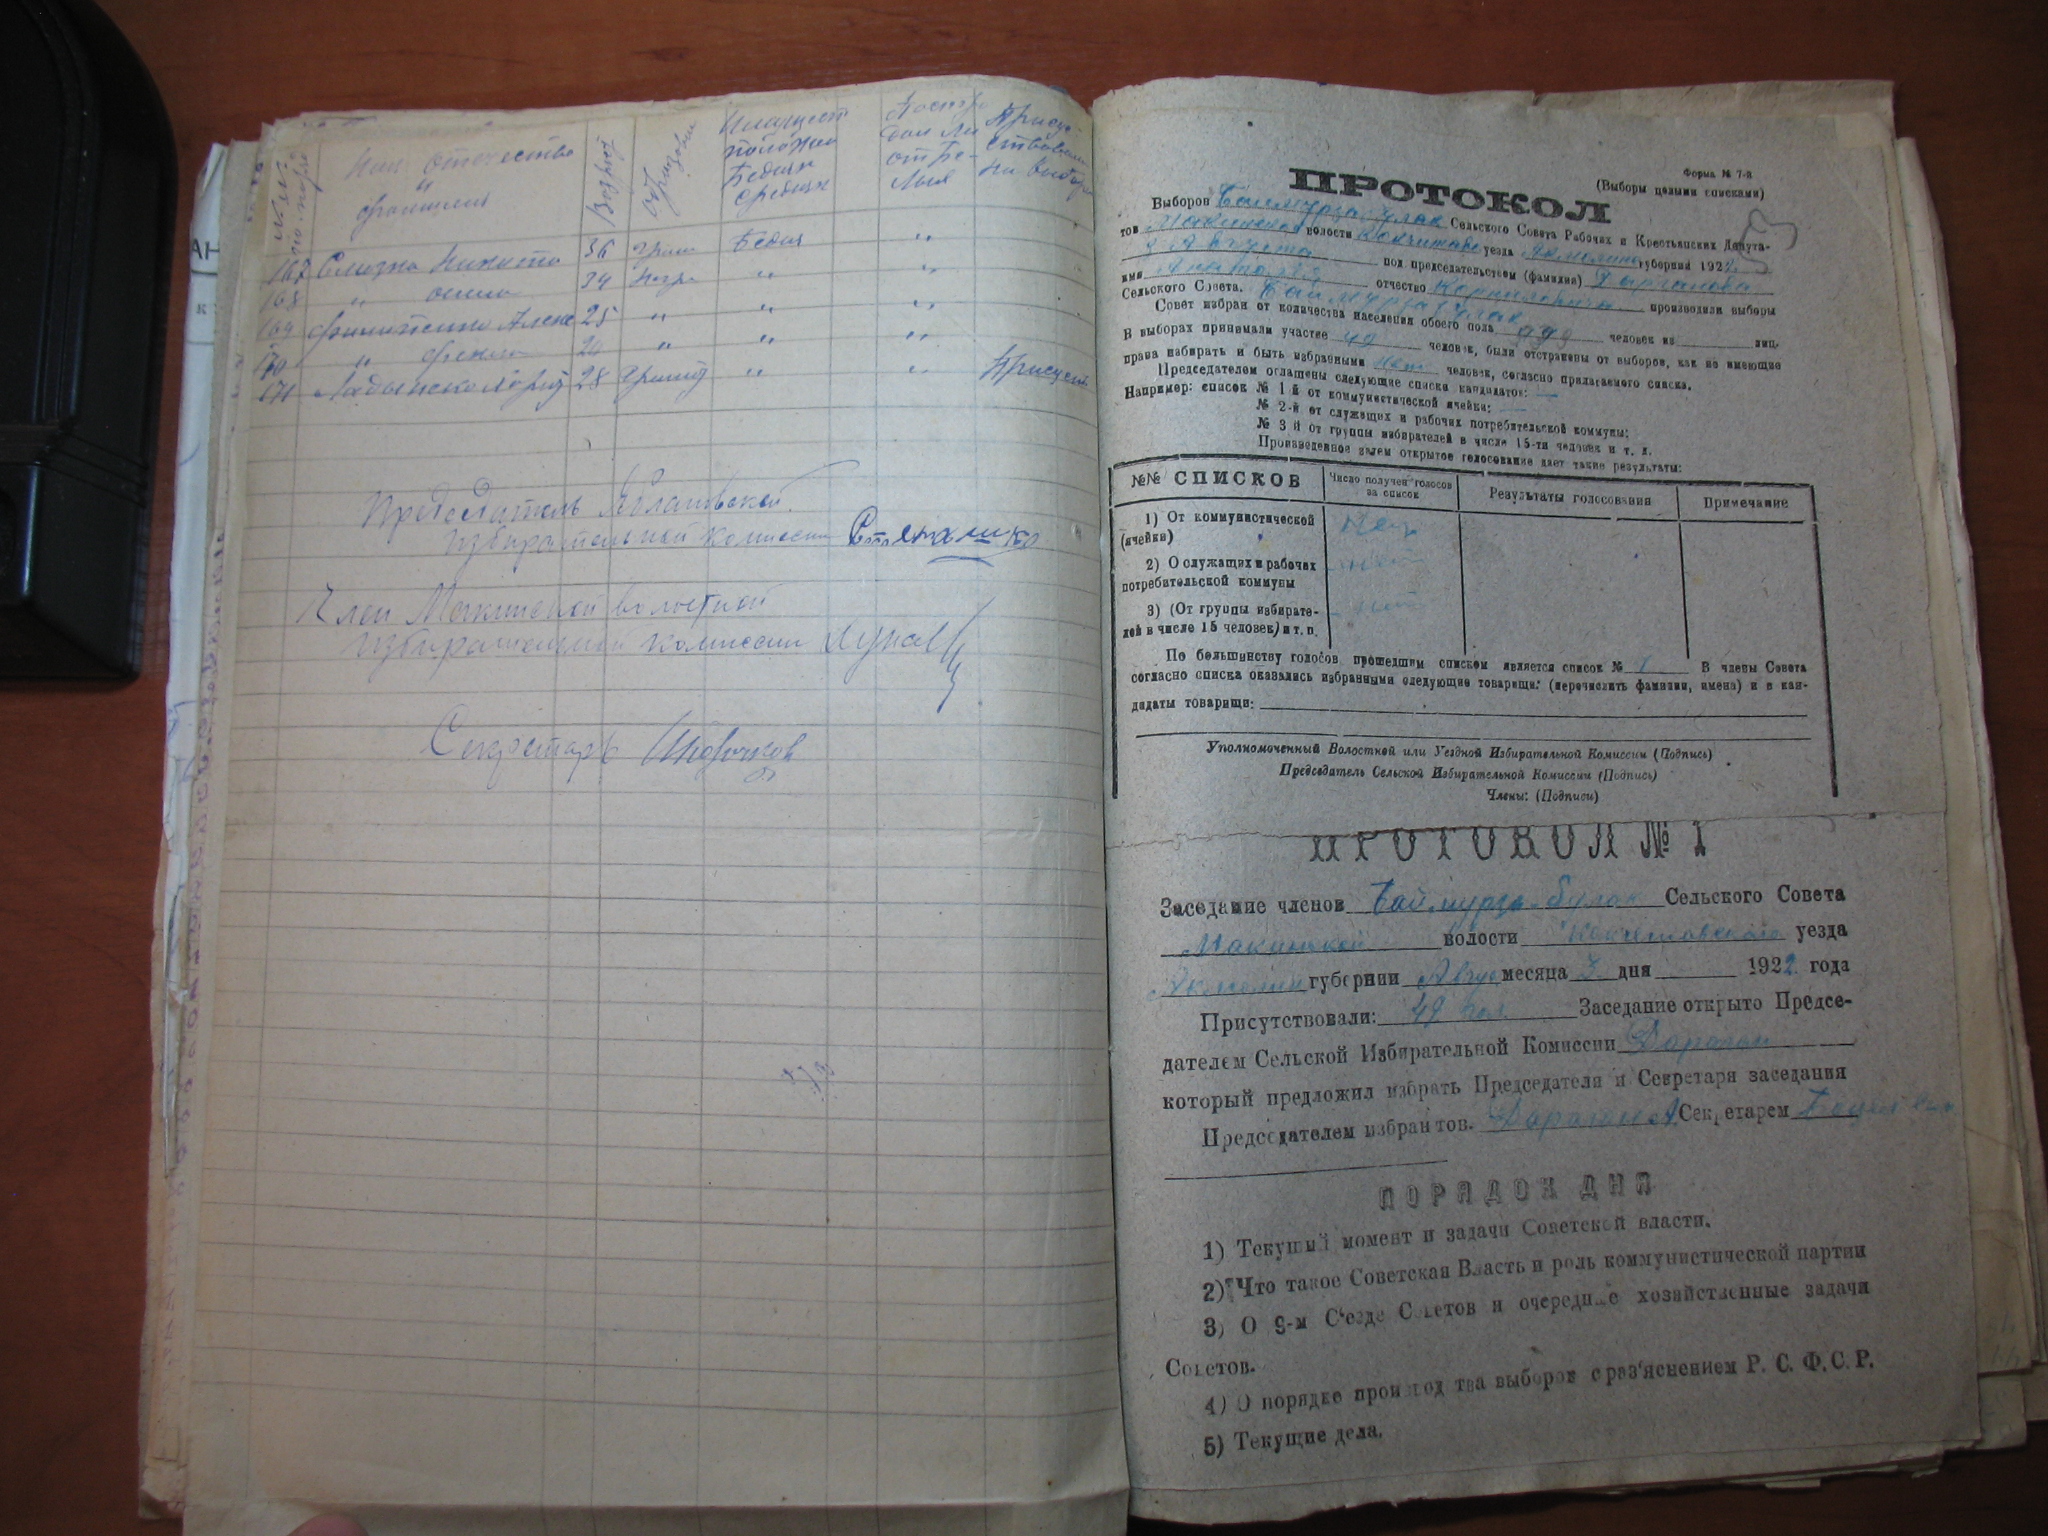 №№ по поряд
Имя отчество
и
фамилия
Возраст
Имущест
положен
Бедняк
средняк
Постра
дал ли
от бе-
лых
Присут-
ствовал
на выбор
167 Слизка Никита 36 Бедня "
168 " 34 Негр " "
169 25 " " "
170 " " " "
171 28 " " Присутст
Председатель
избирательной комиссии Степаненко
Член Макинской волостной
избирательной комиссии
Секретарь
Форма № 7-й
(Выборы целыми списками)
ПРОТОКОЛ
Выборов Баймурза-Булак Сельского Совета Рабочих и Крестьянских Депута-
тов Макинской волости Кокчетавск уезда Акмолинск губернии 1922
3 Августа под председательством (фамилия)
имя отчество Корнилович производили выборы
Сельского Совета. Баймурза Булак
Совет избран от количества населения обоего пола человек из лиц.
В выборах принимали участие 49 человек, были отстранены от выборов, как не имеющие
права избирать и быть избранными нет человек, согласно прилагаемого списка.
Председателем оглашены следующие списки кандидатов:
Например: список № 1 й от коммунистической ячейки;
№ 2-й от служащих и рабочих потребительской коммуны;
№ 3 й от группы избирателей в числе 15-ти человек и т. д.
Произведенное затем открытое голосование дает такие результаты:
№№ СПИСКОВ Число получен голосов за список Результаты голосования Примечание
1) От коммунистической
(ячейки) нет
2) О служащих и рабочих
потребительской коммуны нет
3) (От группы избирате-
лей в числе 15 человек) и т. п. нет
По большинству голосов прошедшим списком является список № 1 В члены Совета
согласно списка оказались избранными следующие товарищи: (перечислить фамилии, имена) и в кан-
дидаты товарищи:
Уполномоченный Волостной или Уездной Избирательной Комиссии (Подпись)
Председатель Сельской Избирательной Комиссии (Подпись)
Члены: (Подписи)
ПРОТОКОЛ № 1
Заседание членов Баймурза-Булак Сельского Совета
Макинской волости Кокчетавского уезда
Акмолин губернии Август месяца 3 дня 1922 года
Присутствовали: 49 чел. Заседание открыто Предсе-
дателем Сельской Избирательной Комиссии Дараган
который предложил избрать Председателя и Секретаря заседания
Председателем избран тов. Дараган А Секретарем
ПОРЯДОК ДНЯ
1) Текущий момент и задачи Советской власти.
2) Что такое Советская Власть и роль коммунистической партии
3) О 9-м С'езде Советов и очередные хозяйственные задачи
Советов.
4) О порядке производства выборов с раз'яснением Р. С. Ф. С. Р.
5) Текущие дела.